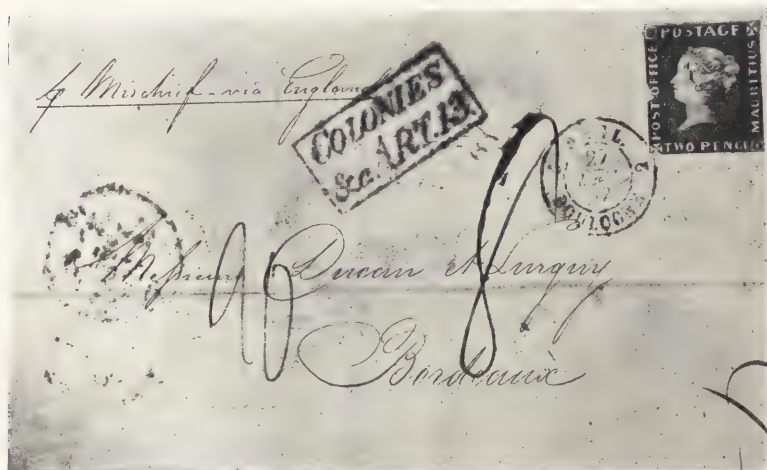 p Mischief - via England
COLONIES
&c. ART. 13.
POSTAGE
POST OFFICE
MAURITIUS
TWO PENCE
ANGL.
27
BOULOGNE
2
Messieurs Ducau et Lurguy
Bordeaux